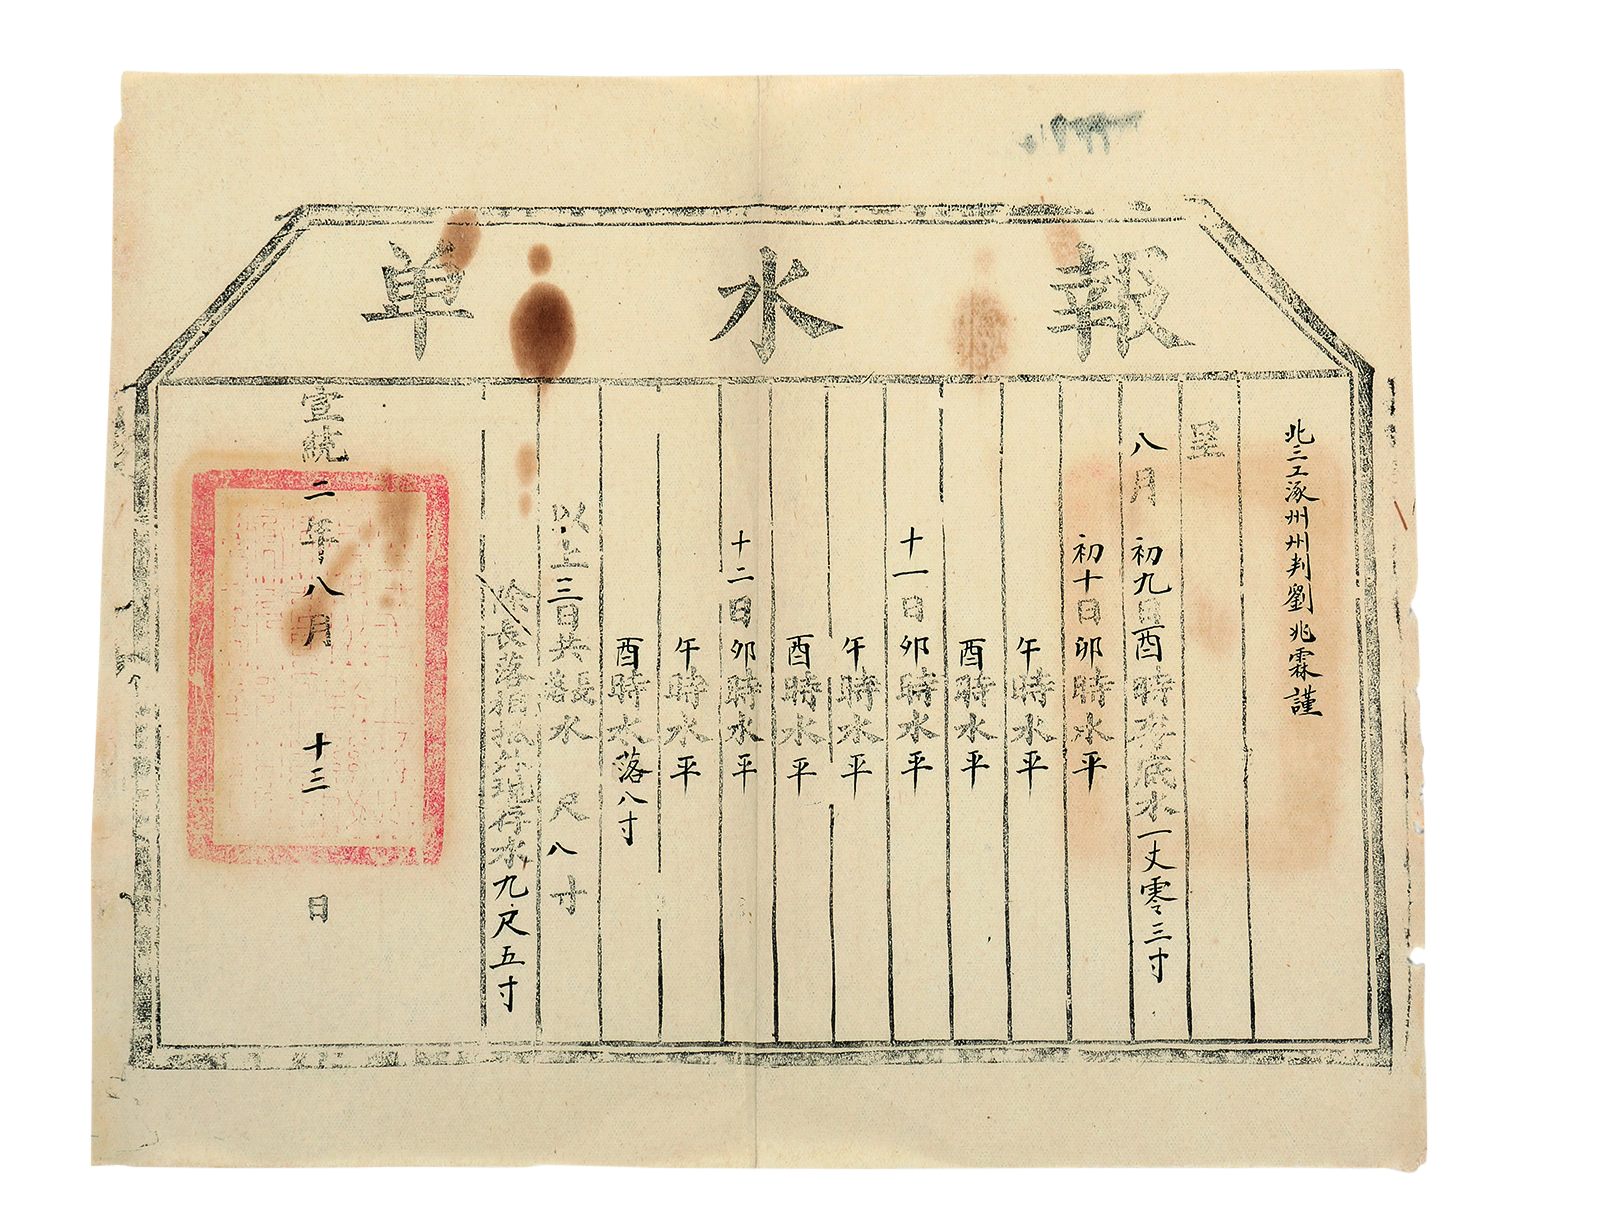 報水单
北三工涿州州判劉兆霖謹
呈
八月初九日酉時存底水一丈零三寸
初十日卯時水平
午時水平
酉時水平
十一日卯時水平
午時水平
酉時水平
十二日卯時水平
午時水平
酉時水落八寸
以上三日共落長水 尺八寸
除長落相抵外現存水九尺五寸
宣統二年八月十三日